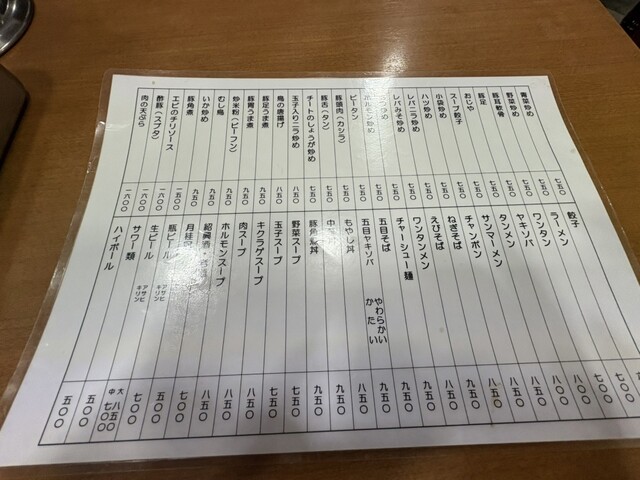 青菜炒め 七五〇
野菜炒め 七五〇
豚耳軟骨 七五〇
豚足 七五〇
おじや 七五〇
スープ餃子 七五〇
小袋炒め 七五〇
ハツ炒め 七五〇
レバニラ炒め 七五〇
レバみそ炒め 七五〇
炒め 七五〇
ホルモン炒め 七五〇
ピータン 七五〇
豚頭肉(カシラ) 七五〇
豚舌(タン) 七五〇
チートのしょうが炒め 七五〇
玉子入りニラ炒め 八五〇
鳥の唐揚げ 八五〇
豚足うま煮 九五〇
豚胃うま煮 九五〇
炒米粉(ビーフン) 九五〇
むし鳥 九五〇
いか炒め 九五〇
豚角煮 九五〇
エビのチリソース 一五〇〇
酢豚(スブタ) 一六〇〇
肉の天ぷら 一六〇〇
餃子
ラーメン 七〇〇
ワンタン 七〇〇
ヤキソバ 八〇〇
タンメン 八〇〇
サンマーメン 九五〇
チャンポン 九五〇
ねぎそば 八五〇
えびそば 九五〇
ワンタンメン 九五〇
チャーシュー麺 九五〇
五目そば 九五〇
五目ヤキソバ やわらかい かたい 九五〇
もやし丼 八五〇
中華丼 九五〇
豚角煮丼 九五〇
野菜スープ 七五〇
玉子スープ 七五〇
キクラゲスープ 八五〇
肉スープ 八五〇
ホルモンスープ 八五〇
紹興酒
月桂冠
瓶ビール アサヒ キリン 七〇〇
生ビール アサヒ キリン 大 八五〇 中 七〇〇
サワー類 五〇〇
ハイボール 五〇〇